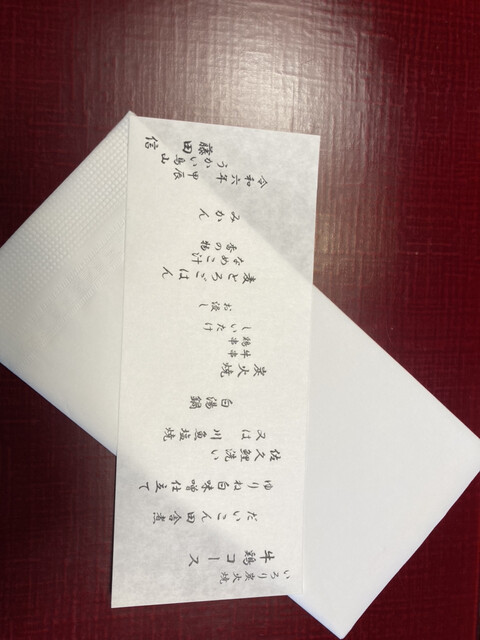 いろり炭火焼
牛鶏コース
だいこん田舎煮
ゆりね白味噌仕立て
佐久鯉洗い
又は川魚塩焼
白湯鍋
炭火焼
牛串
鶏串
しいたけ
お浸し
麦とろごはん
なめこ汁
香の物
みかん
令和六年甲辰
うかい鳥山
藤田信